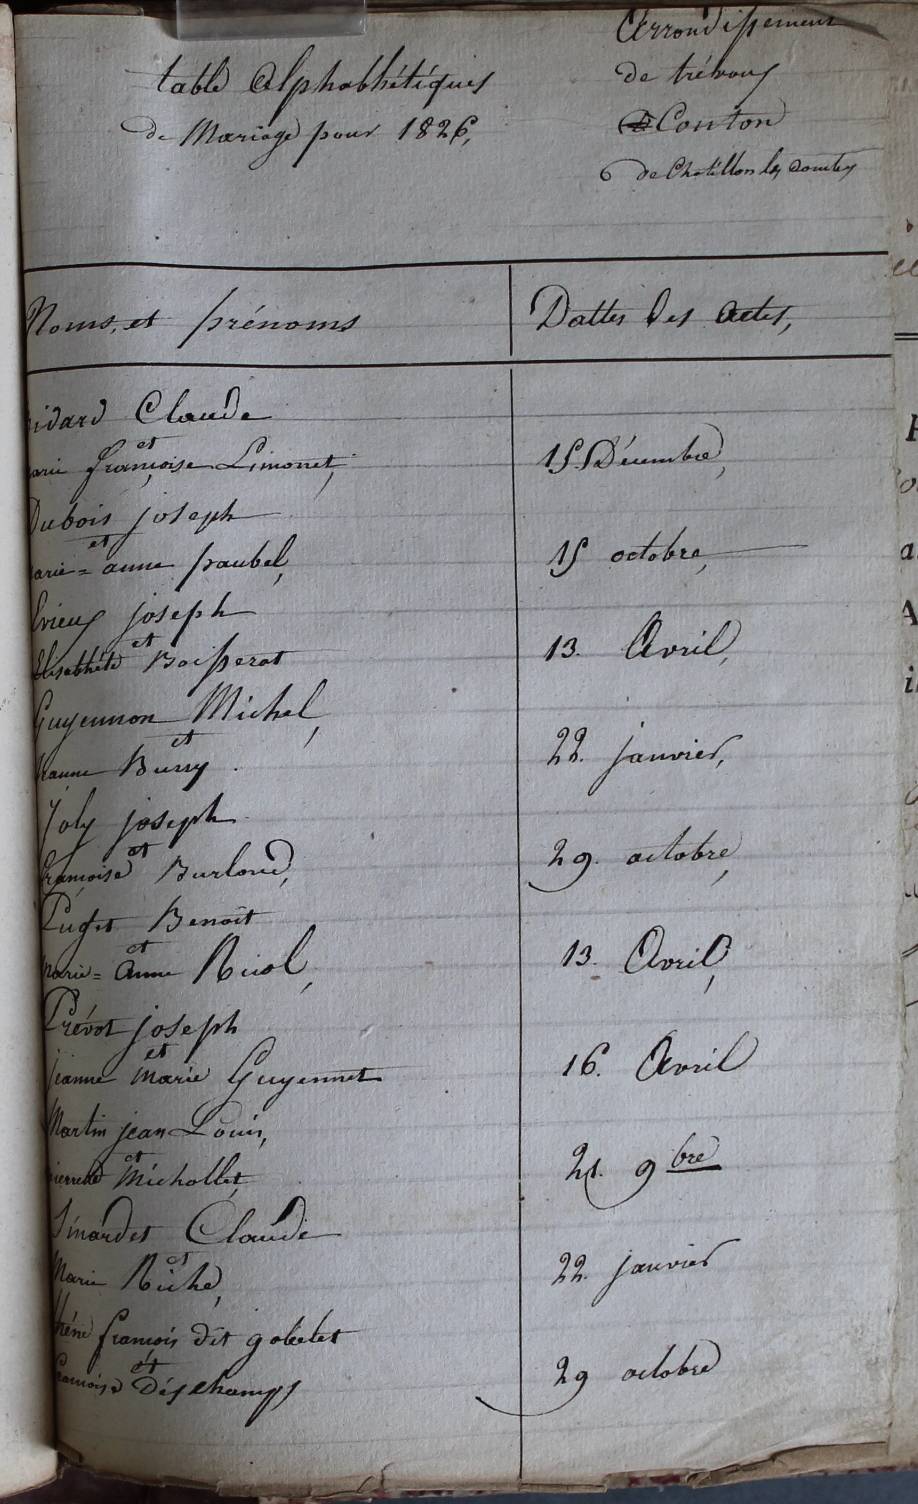 Arrondissement
table Alphabhétiques
de trévoux
de Mariage pour 1826,
Canton
de Chatillon les dombes
Noms, et prénoms
Dattes des actes,
Claude
et
françoise Limonet,
15 Décembre,
Dubois joseph
et
marie = anne paubel,
15 octobre,
joseph
et
Elisabhéte Boisserat
13. Avril,
Guyennon Michel,
et
jeanne Bussy
22. janvier,
Joly joseph
et
françoise Burloud,
29. octobre,
Puget Benoit
et
marie = anne Nicol,
13. Avril,
Prévot joseph
et
jeanne marie Guyennet
16. Avril
Martin jean Louis,
et
Michollet,
21. 9bre
Sinardet Claude
et
Marie Riche,
22. janvier
françois dit gobelet
et
françoise Déschamps
29 octobre